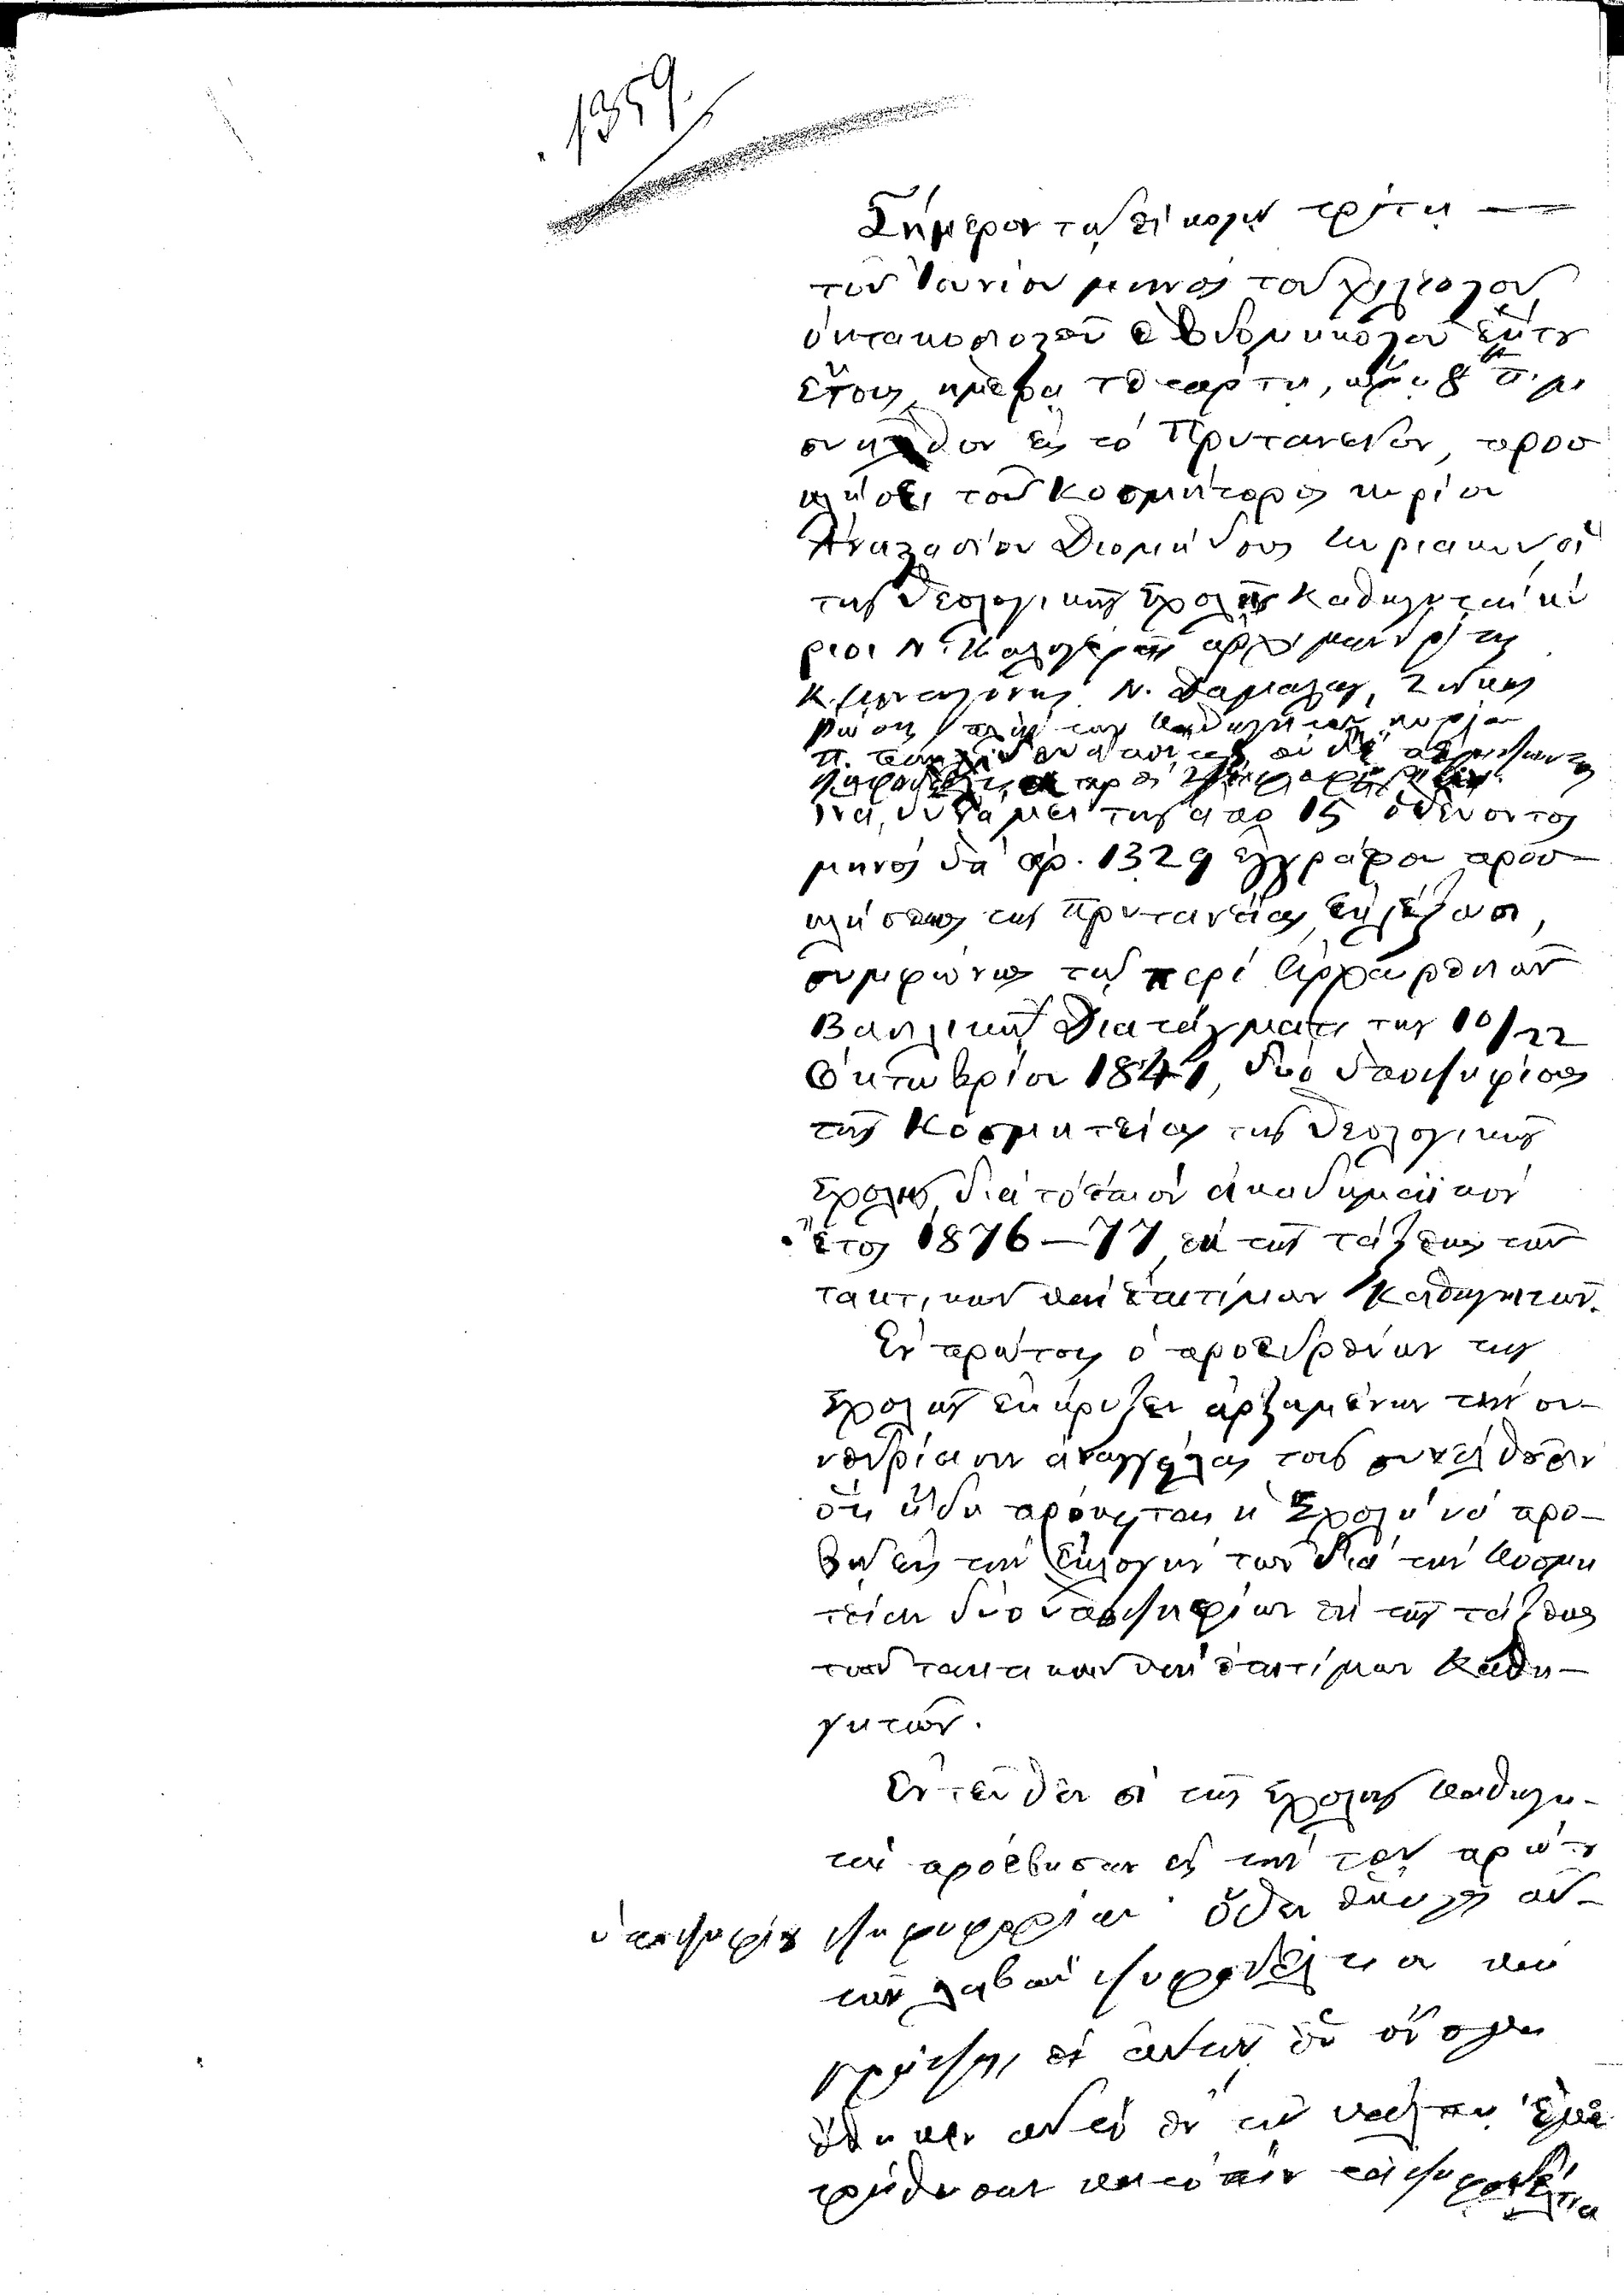 1359.
Σήμερον τῇ εἰκοστῇ τρίτῃ —
τοῦ Ἰουνίου μηνὸς τοῦ χιλιοστοῦ
ὀκτακοσιοστοῦ ἑβδομηκοστοῦ ἕκτου
ἔτους, ἡμέρᾳ τετάρτῃ, ὥρᾳ 8 π.μ
συνῆλθον εἰς τὸ Πρυτανεῖον, προσ
κλήσει τοῦ Κοσμήτορος κυρίου
Ἀναστασίου Διομήδους Κυριακοῦ, οἱ
τῆς Θεολογικῆς Σχολῆς Καθηγηταὶ κύ
ριοι Ν. Καλογερᾶς ἀρχιμανδρίτης
Κ. Κοντογόνης Ν. Δαμαλᾶς, Ζῆκος
Ῥώσης πλὴν τοῦ καθηγητοῦ κυρίου
Π. Παυλίδου
ἵνα, δυνάμει τῆς ἀπὸ 15 ὁδεύοντος
μηνὸς ὑπ' ἀρ. 1329 ἐγγράφου προσ-
κλήσεως τῆς Πρυτανείας, ἐκλέξωσι,
συμφώνως τῷ περὶ ἀρχαιρεσιῶν
Βασιλικῷ Διατάγματι τῆς 10/22
Ὀκτωβρίου 1841, δύο ὑποψηφίους
τῆς Κοσμητείας τῆς Θεολογικῆς
Σχολῆς διὰ τὸ ἐπιὸν ἀκαδημαϊκὸν
ἔτος 1876—77 ἐκ τῆς τάξεως τῶν
τακτικῶν καὶ ἐπιτίμων Καθηγητῶν.
Ἐν πρώτοις ὁ προεδρεύων τῆς
Σχολῆς ἐκήρυξεν ἀρξαμένην τὴν συ-
νεδρίασιν ἀναγγείλας τοῖς συνελθοῦσιν
ὅτι ἤδη πρόκειται ἡ Σχολὴ νὰ προ-
βῇ εἰς τὴν ἐκλογὴν τῶν διὰ τὴν Κοσμη
τείαν δύο ὑποψηφίων ἐκ τῆς τάξεως
τῶν τακτικῶν καὶ ἐπιτίμων Καθη-
γητῶν.
Ἐντεῦθεν οἱ τῆς Σχολῆς Καθηγη-
ταὶ προέβησαν εἰς τὴν τοῦ πρώτου
ὑποψηφίου ψηφοφορίαν· ὅθεν ἕκαστος αὐ-
τῶν λαβὼν ψηφοδέλτιον καὶ
γράψας ἐπ' αὐτοῦ ἓν ὄνομα
ἔθηκεν αὐτὸ ἐν τῇ κάλπῃ. Ἐμε
τρήθησαν κατόπιν τὰ ψηφοδέλτια